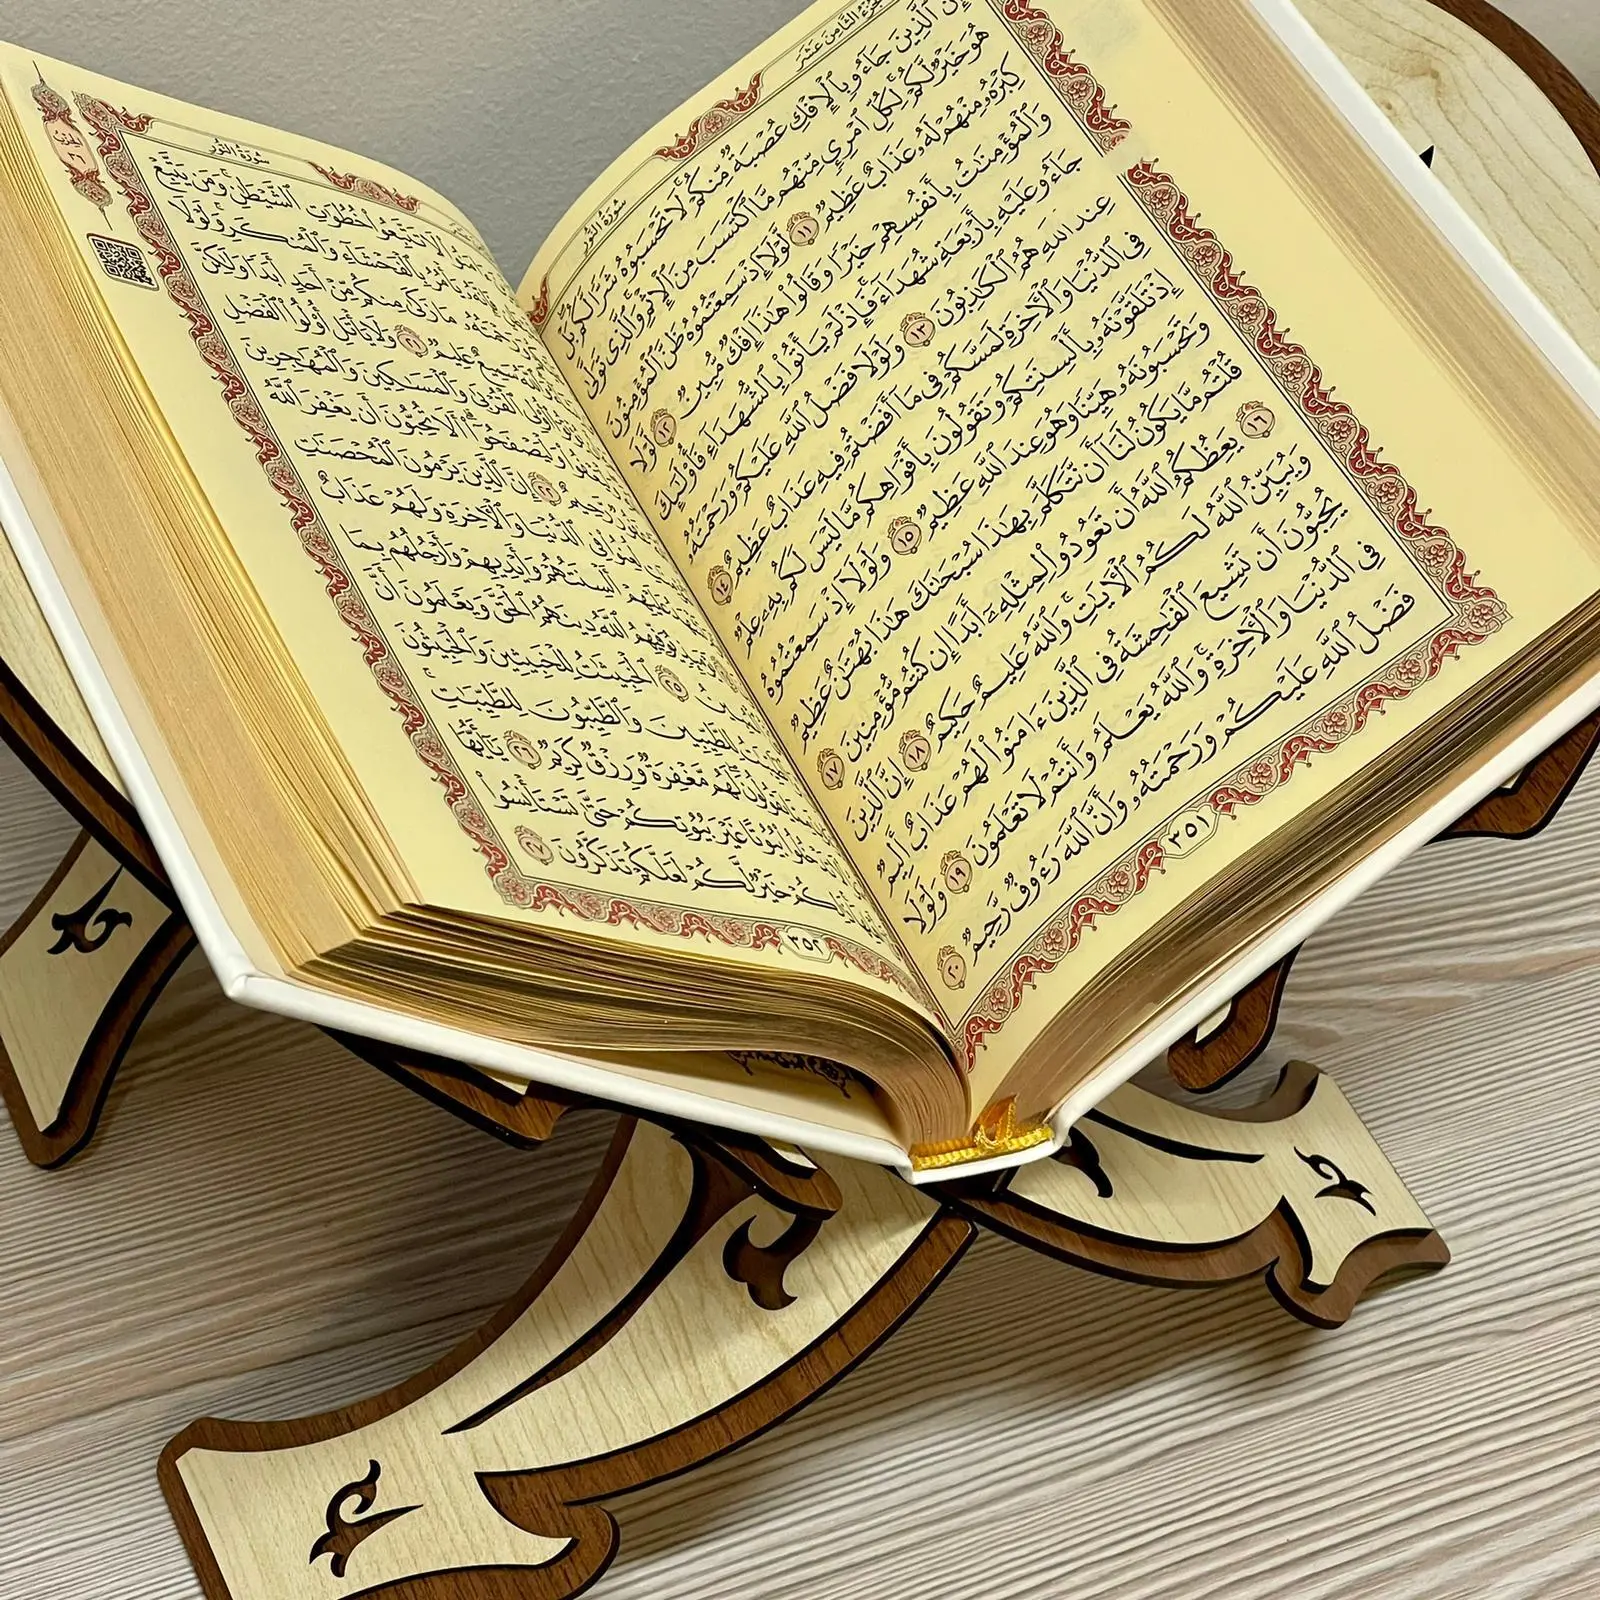 الجزء الثامن عشر
سُورَةُ النُّورِ
إِنَّ ٱلَّذِينَ جَآءُو بِٱلْإِفْكِ عُصْبَةٌ مِّنكُمْ ۚ لَا تَحْسَبُوهُ شَرًّا لَّكُم ۖ بَلْ
هُوَ خَيْرٌ لَّكُمْ ۚ لِكُلِّ ٱمْرِئٍ مِّنْهُم مَّا ٱكْتَسَبَ مِنَ ٱلْإِثْمِ ۚ وَٱلَّذِى تَوَلَّىٰ
كِبْرَهُۥ مِنْهُمْ لَهُۥ عَذَابٌ عَظِيمٌ ١١ لَّوْلَآ إِذْ سَمِعْتُمُوهُ ظَنَّ ٱلْمُؤْمِنُونَ
وَٱلْمُؤْمِنَٰتُ بِأَنفُسِهِمْ خَيْرًا وَقَالُوا۟ هَٰذَآ إِفْكٌ مُّبِينٌ ١٢ لَّوْلَا
جَآءُو عَلَيْهِ بِأَرْبَعَةِ شُهَدَآءَ ۚ فَإِذْ لَمْ يَأْتُوا۟ بِٱلشُّهَدَآءِ فَأُو۟لَٰٓئِكَ
عِندَ ٱللَّهِ هُمُ ٱلْكَٰذِبُونَ ١٣ وَلَوْلَا فَضْلُ ٱللَّهِ عَلَيْكُمْ وَرَحْمَتُهُۥ
فِى ٱلدُّنْيَا وَٱلْءَاخِرَةِ لَمَسَّكُمْ فِى مَآ أَفَضْتُمْ فِيهِ عَذَابٌ عَظِيمٌ ١٤
إِذْ تَلَقَّوْنَهُۥ بِأَلْسِنَتِكُمْ وَتَقُولُونَ بِأَفْوَاهِكُم مَّا لَيْسَ لَكُم بِهِۦ عِلْمٌ
وَتَحْسَبُونَهُۥ هَيِّنًا وَهُوَ عِندَ ٱللَّهِ عَظِيمٌ ١٥ وَلَوْلَآ إِذْ سَمِعْتُمُوهُ
قُلْتُم مَّا يَكُونُ لَنَآ أَن نَّتَكَلَّمَ بِهَٰذَا سُبْحَٰنَكَ هَٰذَا بُهْتَٰنٌ عَظِيمٌ
١٦ يَعِظُكُمُ ٱللَّهُ أَن تَعُودُوا۟ لِمِثْلِهِۦٓ أَبَدًا إِن كُنتُم مُّؤْمِنِينَ ١٧
وَيُبَيِّنُ ٱللَّهُ لَكُمُ ٱلْءَايَٰتِ ۚ وَٱللَّهُ عَلِيمٌ حَكِيمٌ ١٨ إِنَّ ٱلَّذِينَ
يُحِبُّونَ أَن تَشِيعَ ٱلْفَٰحِشَةُ فِى ٱلَّذِينَ ءَامَنُوا۟ لَهُمْ عَذَابٌ أَلِيمٌ
فِى ٱلدُّنْيَا وَٱلْءَاخِرَةِ ۚ وَٱللَّهُ يَعْلَمُ وَأَنتُمْ لَا تَعْلَمُونَ ١٩ وَلَوْلَا
فَضْلُ ٱللَّهِ عَلَيْكُمْ وَرَحْمَتُهُۥ وَأَنَّ ٱللَّهَ رَءُوفٌ رَّحِيمٌ ٢٠
٣٥١
سُورَةُ النُّورِ
لَا تَتَّبِعُوا۟ خُطُوَٰتِ ٱلشَّيْطَٰنِ ۚ وَمَن يَتَّبِعْ
يَأْمُرُ بِٱلْفَحْشَآءِ وَٱلْمُنكَرِ ۚ وَلَوْلَا
وَرَحْمَتُهُۥ مَا زَكَىٰ مِنكُم مِّنْ أَحَدٍ أَبَدًا وَلَٰكِنَّ
سَمِيعٌ عَلِيمٌ ٢١ وَلَا يَأْتَلِ أُو۟لُوا۟ ٱلْفَضْلِ
أُو۟لِى ٱلْقُرْبَىٰ وَٱلْمَسَٰكِينَ وَٱلْمُهَٰجِرِينَ
وَلْيَصْفَحُوٓا۟ ۗ أَلَا تُحِبُّونَ أَن يَغْفِرَ ٱللَّهُ
رَّحِيمٌ ٢٢ إِنَّ ٱلَّذِينَ يَرْمُونَ ٱلْمُحْصَنَٰتِ
لُعِنُوا۟ فِى ٱلدُّنْيَا وَٱلْءَاخِرَةِ وَلَهُمْ عَذَابٌ
عَلَيْهِمْ أَلْسِنَتُهُمْ وَأَيْدِيهِمْ وَأَرْجُلُهُم بِمَا
يُوَفِّيهِمُ ٱللَّهُ دِينَهُمُ ٱلْحَقَّ وَيَعْلَمُونَ أَنَّ
٢٥ ٱلْخَبِيثَٰتُ لِلْخَبِيثِينَ وَٱلْخَبِيثُونَ
لِلطَّيِّبِينَ وَٱلطَّيِّبُونَ لِلطَّيِّبَٰتِ ۚ
لَهُم مَّغْفِرَةٌ وَرِزْقٌ كَرِيمٌ ٢٦ يَٰٓأَيُّهَا
بُيُوتًا غَيْرَ بُيُوتِكُمْ حَتَّىٰ تَسْتَأْنِسُوا۟
خَيْرٌ لَّكُمْ لَعَلَّكُمْ تَذَكَّرُونَ ٢٧
٣٥٢